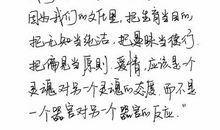 因为我们的文化里，把生育当目的，
把无知当纯洁，把愚昧当德行，
把偏见当原则。爱情，应该是一个
灵魂对另一个灵魂的态度，而不是
一个器官对另一个器官的反应。”